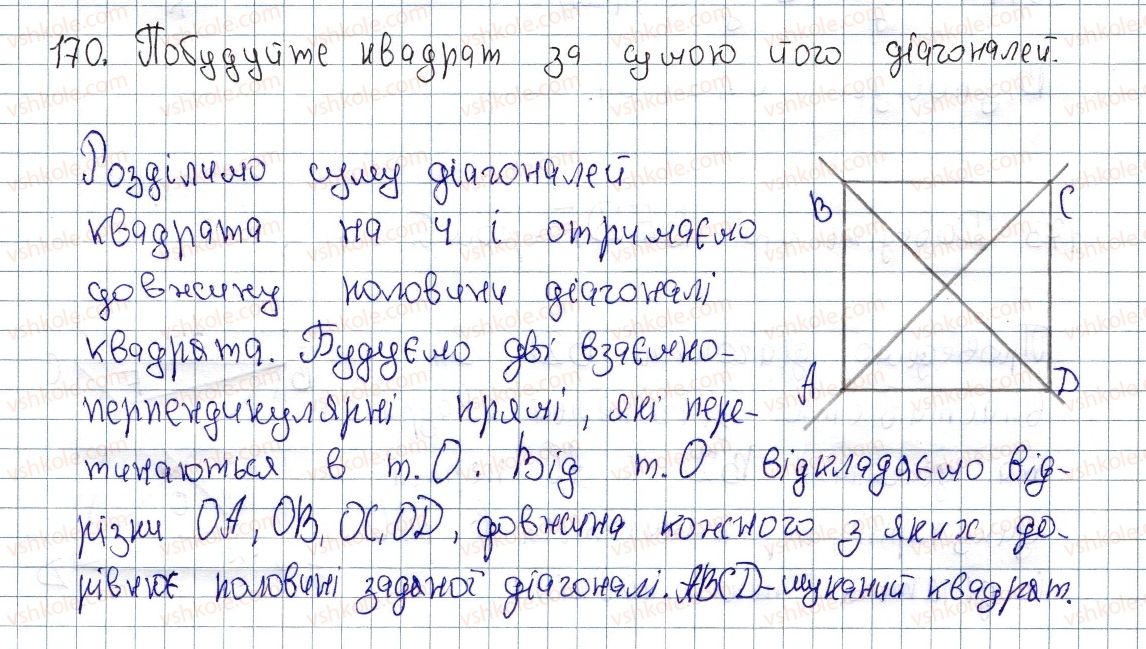 170. Побудуйте квадрат за сумою його діагоналей.
Розділимо суму діагоналей
квадрата на 4 і отримаємо
довжину половини діагоналі
квадрата. Будуємо дві взаємно-
перпендикулярні прямі, які пере-
тинаються в т. О. Від т. О відкладаємо від-
різки ОА, ОВ, ОС, ОD, довжина кожного з яких до-
рівнює половині заданої діагоналі. ABCD - шуканий квадрат.
B C
A D